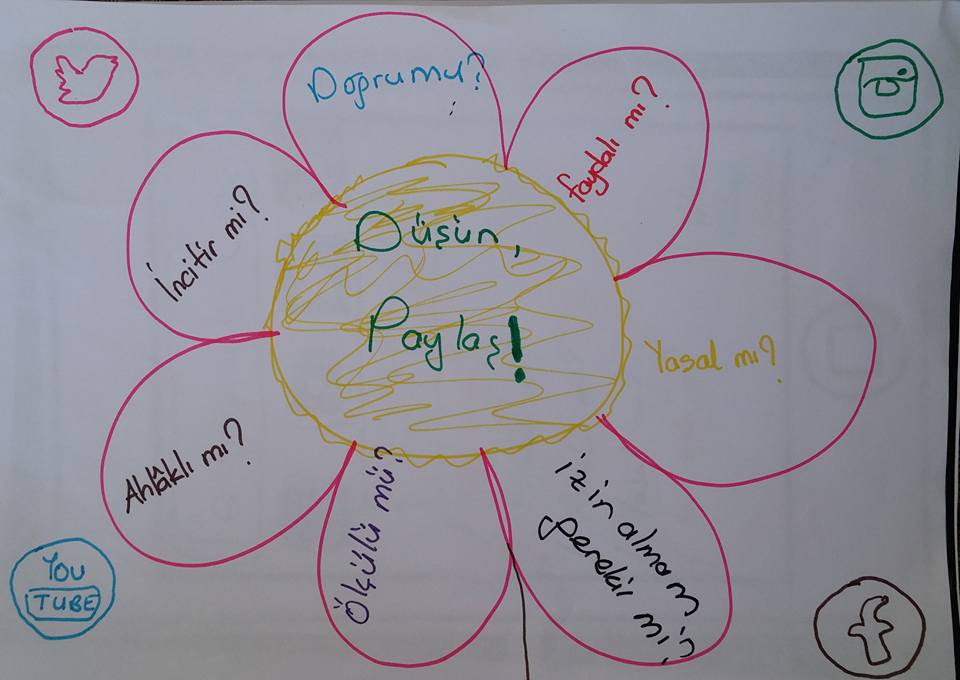 Düşün,
Paylaş!
Doğrumu?
faydalı mı?
Yasal mı?
izin almam
gerekir mi?
Ölçülü mü?
Ahlâklı mı?
İncitir mi?
You
TUBE
f